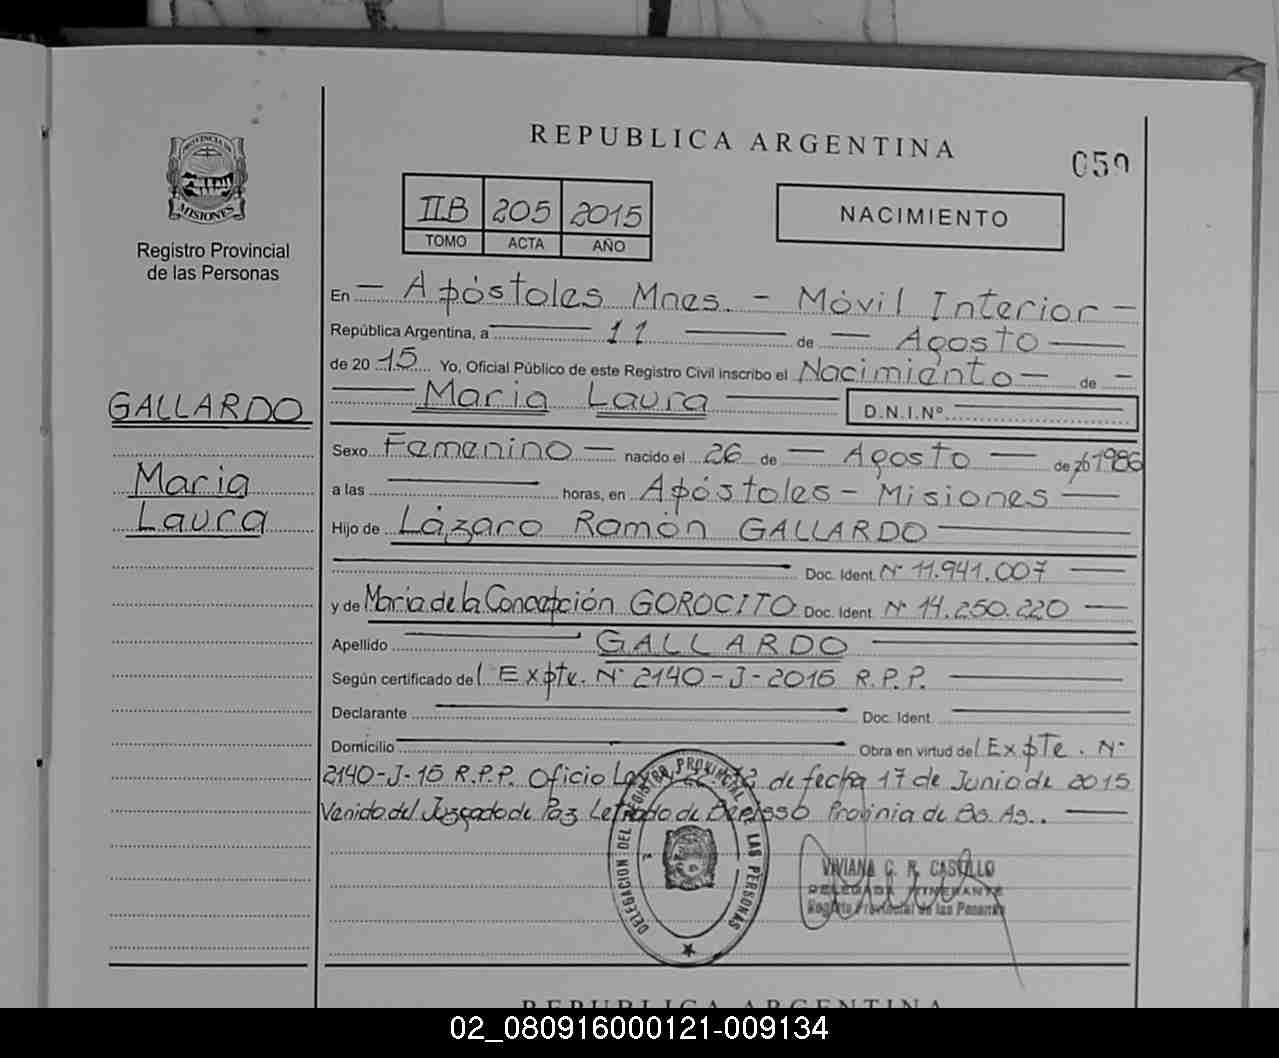 REPUBLICA ARGENTINA
059
PROVINCIA DE
MISIONES
Registro Provincial
de las Personas
II.B 205 2015
TOMO ACTA AÑO
NACIMIENTO
En — Apóstoles Mnes. — Móvil Interior —
República Argentina, a — 11 — de — Agosto —
de 20 15 Yo, Oficial Público de este Registro Civil inscribo el Nacimiento — de —
— Maria Laura — D.N.I.Nº —
GALLARDO
Maria
Laura
Sexo Femenino — nacido el 26 de — Agosto — de 1986
a las — horas, en Apóstoles - Misiones —
Hijo de Lázaro Ramón GALLARDO —
— Doc. Ident. Nº 11.941.007 —
y de Maria de la Concepción GOROCITO Doc. Ident. Nº 14.250.220 —
Apellido — GALLARDO —
Según certificado del Expte. Nº 2140-J-2015 R.P.P. —
Declarante — Doc. Ident. —
Domicilio — Obra en virtud del Expte. Nº
2140-J-15 R.P.P. Oficio Ley de fecha 17 de Junio de 2015
Venido del Juzgado de Paz Letrado de Berisso Provinia de Bs. As.. —
DELEGACION DEL REGISTRO PROVINCIAL DE LAS PERSONAS
VIVIANA C. R. CASTILLO
DELEGADA ITINERANTE
Registro Provincial de las Personas
REPUBLICA ARGENTINA
02_080916000121-009134